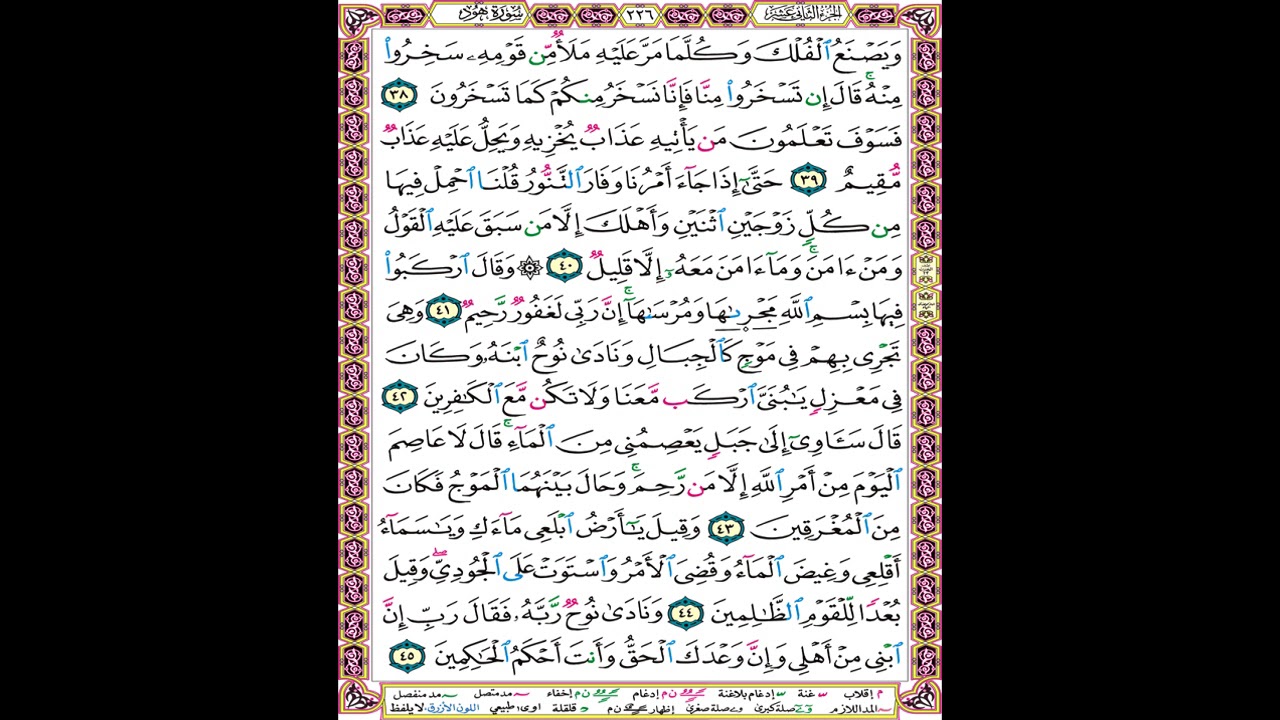 الجزء الثاني عشر ٢٢٦ سورة هود
وَيَصْنَعُ ٱلْفُلْكَ وَكُلَّمَا مَرَّ عَلَيْهِ مَلَأٌ مِّن قَوْمِهِۦ سَخِرُوا۟
مِنْهُ ۚ قَالَ إِن تَسْخَرُوا۟ مِنَّا فَإِنَّا نَسْخَرُ مِنكُمْ كَمَا تَسْخَرُونَ ٣٨
فَسَوْفَ تَعْلَمُونَ مَن يَأْتِيهِ عَذَابٌ يُخْزِيهِ وَيَحِلُّ عَلَيْهِ عَذَابٌ
مُّقِيمٌ ٣٩ حَتَّىٰٓ إِذَا جَآءَ أَمْرُنَا وَفَارَ ٱلتَّنُّورُ قُلْنَا ٱحْمِلْ فِيهَا
مِن كُلٍّ زَوْجَيْنِ ٱثْنَيْنِ وَأَهْلَكَ إِلَّا مَن سَبَقَ عَلَيْهِ ٱلْقَوْلُ
وَمَنْ ءَامَنَ ۚ وَمَآ ءَامَنَ مَعَهُۥٓ إِلَّا قَلِيلٌ ٤٠ ۞ وَقَالَ ٱرْكَبُوا۟
فِيهَا بِسْمِ ٱللَّهِ مَجْر۪ىٰهَا وَمُرْسَىٰهَآ ۚ إِنَّ رَبِّى لَغَفُورٌ رَّحِيمٌ ٤١ وَهِىَ
تَجْرِى بِهِمْ فِى مَوْجٍ كَٱلْجِبَالِ وَنَادَىٰ نُوحٌ ٱبْنَهُۥ وَكَانَ
فِى مَعْزِلٍ يَـٰبُنَىَّ ٱرْكَب مَّعَنَا وَلَا تَكُن مَّعَ ٱلْكَـٰفِرِينَ ٤٢
قَالَ سَـَٔاوِىٓ إِلَىٰ جَبَلٍ يَعْصِمُنِى مِنَ ٱلْمَآءِ ۚ قَالَ لَا عَاصِمَ
ٱلْيَوْمَ مِنْ أَمْرِ ٱللَّهِ إِلَّا مَن رَّحِمَ ۚ وَحَالَ بَيْنَهُمَا ٱلْمَوْجُ فَكَانَ
مِنَ ٱلْمُغْرَقِينَ ٤٣ وَقِيلَ يَـٰٓأَرْضُ ٱبْلَعِى مَآءَكِ وَيَـٰسَمَآءُ
أَقْلِعِى وَغِيضَ ٱلْمَآءُ وَقُضِىَ ٱلْأَمْرُ وَٱسْتَوَتْ عَلَى ٱلْجُودِىِّ ۖ وَقِيلَ
بُعْدًا لِّلْقَوْمِ ٱلظَّـٰلِمِينَ ٤٤ وَنَادَىٰ نُوحٌ رَّبَّهُۥ فَقَالَ رَبِّ إِنَّ
ٱبْنِى مِنْ أَهْلِى وَإِنَّ وَعْدَكَ ٱلْحَقُّ وَأَنتَ أَحْكَمُ ٱلْحَـٰكِمِينَ ٤٥
م إقلاب غنة إدغام بلاغنة ن م إدغام ن م إخفاء مد متصل مد منفصل
المد اللازم صلة كبرى صلة صغرى إظهار ن م قلقلة اوى: طبيعي اللون الأزرق: لا يلفظ